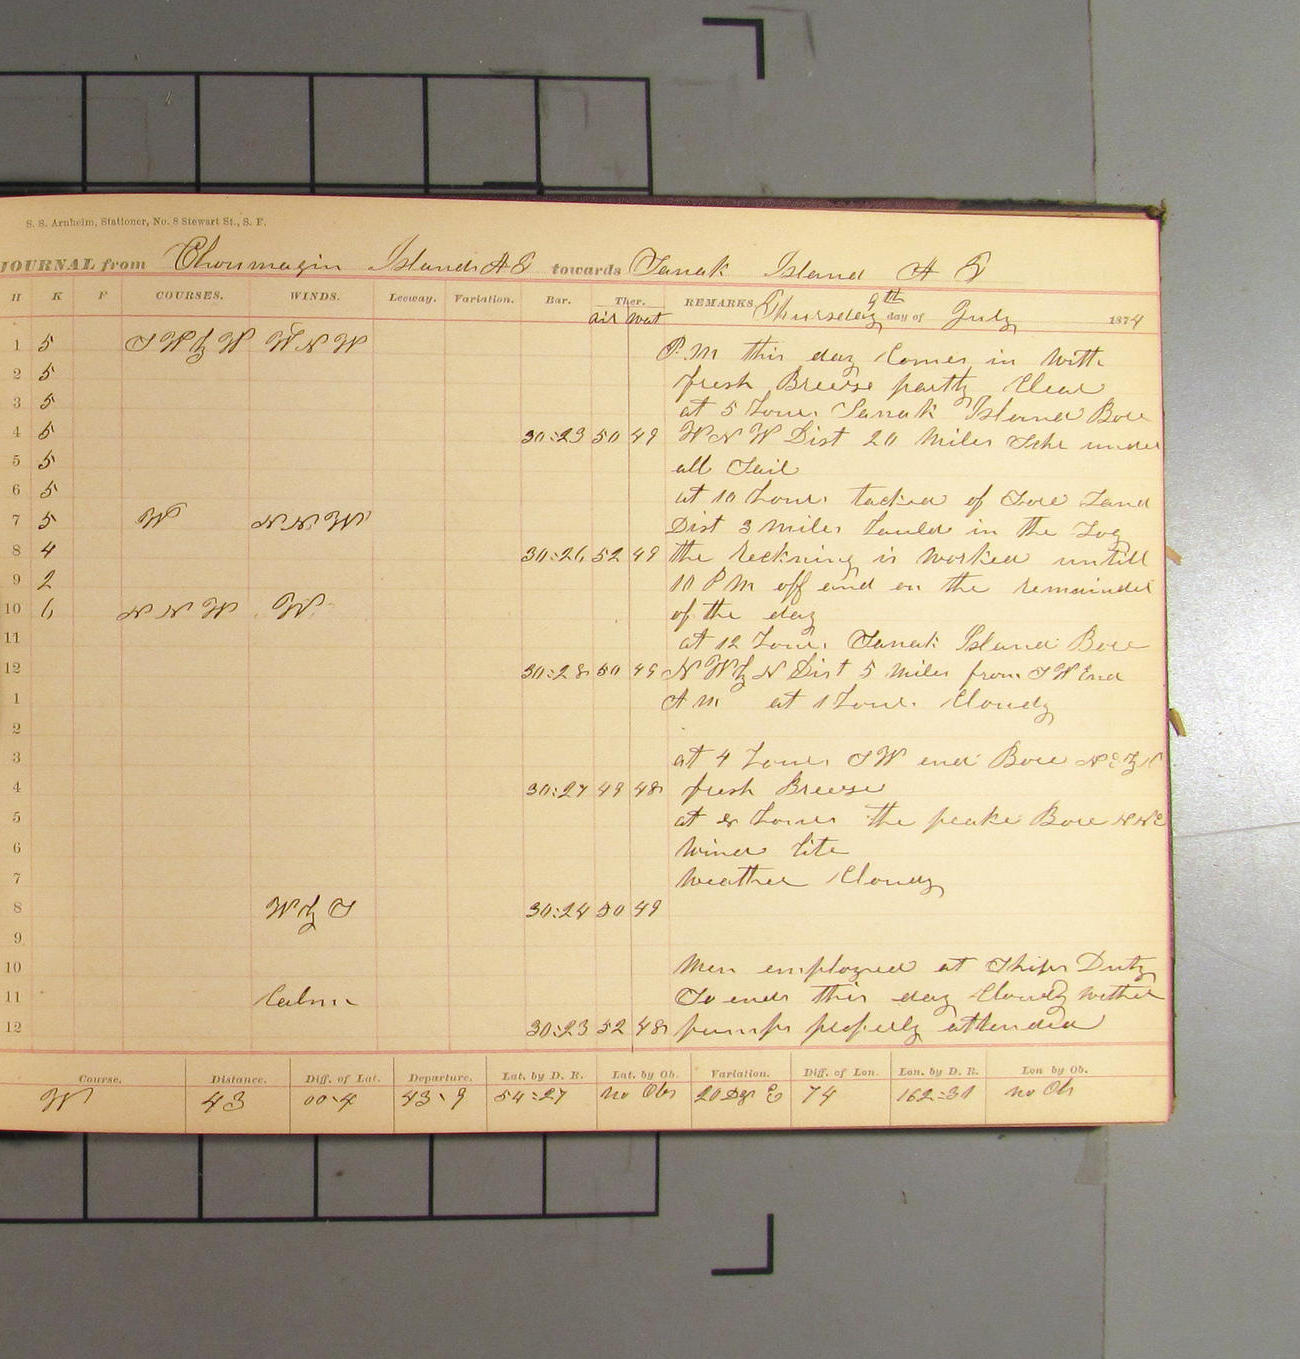 S. S. Arnheim, Stationer, No. 8 Stewart St., S. F.
JOURNAL from Choumagin Islands A T towards Sanak Island A T
H K F COURSES. WINDS. Leeway. Variation. Bar. Ther. REMARKS Thursday 9th day of July 1874
air wat
1 5 SWbyW WNW P.M this day Comes in With
2 5 fresh Breese partly Clear
3 5 at 5 hours Sanak Island Bore
4 5 30:23 50 49 WNW Dist 20 Miles Ship under
5 5 all Sail
6 5 at 10 hours tacked of Shore Land
7 5 W NNW Dist 3 miles hauld in the Fog
8 4 30:26 52 49 the reckning is Worked untill
9 2 10 PM off and on the remainder
10 6 NNW W of the day
11 at 12 hours Sanak Island Bore
12 30:28 50 49 NWbyN Dist 5 miles from SW End
1 A M at 1 hour Cloudy
2
3 at 4 hours SW end Bore
4 30:27 49 48 fresh Breese
5 at 8 hours the peake Bore NNE
6 Wind lite
7 Weather Cloudy
8 WbyS 30:24 50 49
9
10 Men employed at Ships Duty
11 Calm So ends this day Cloudy wether
12 30:23 52 48 pumps properly attended
Course. Distance. Diff. of Lat. Departure. Lat. by D. R. Lat. by Ob. Variation. Diff. of Lon. Lon. by D. R. Lon by Ob.
W 43 00-4 43-9 54:27 no Obs 20 Dgs E 74 162:31 no Ob